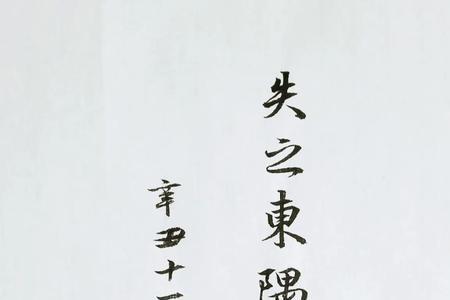 失之東隅
辛丑十